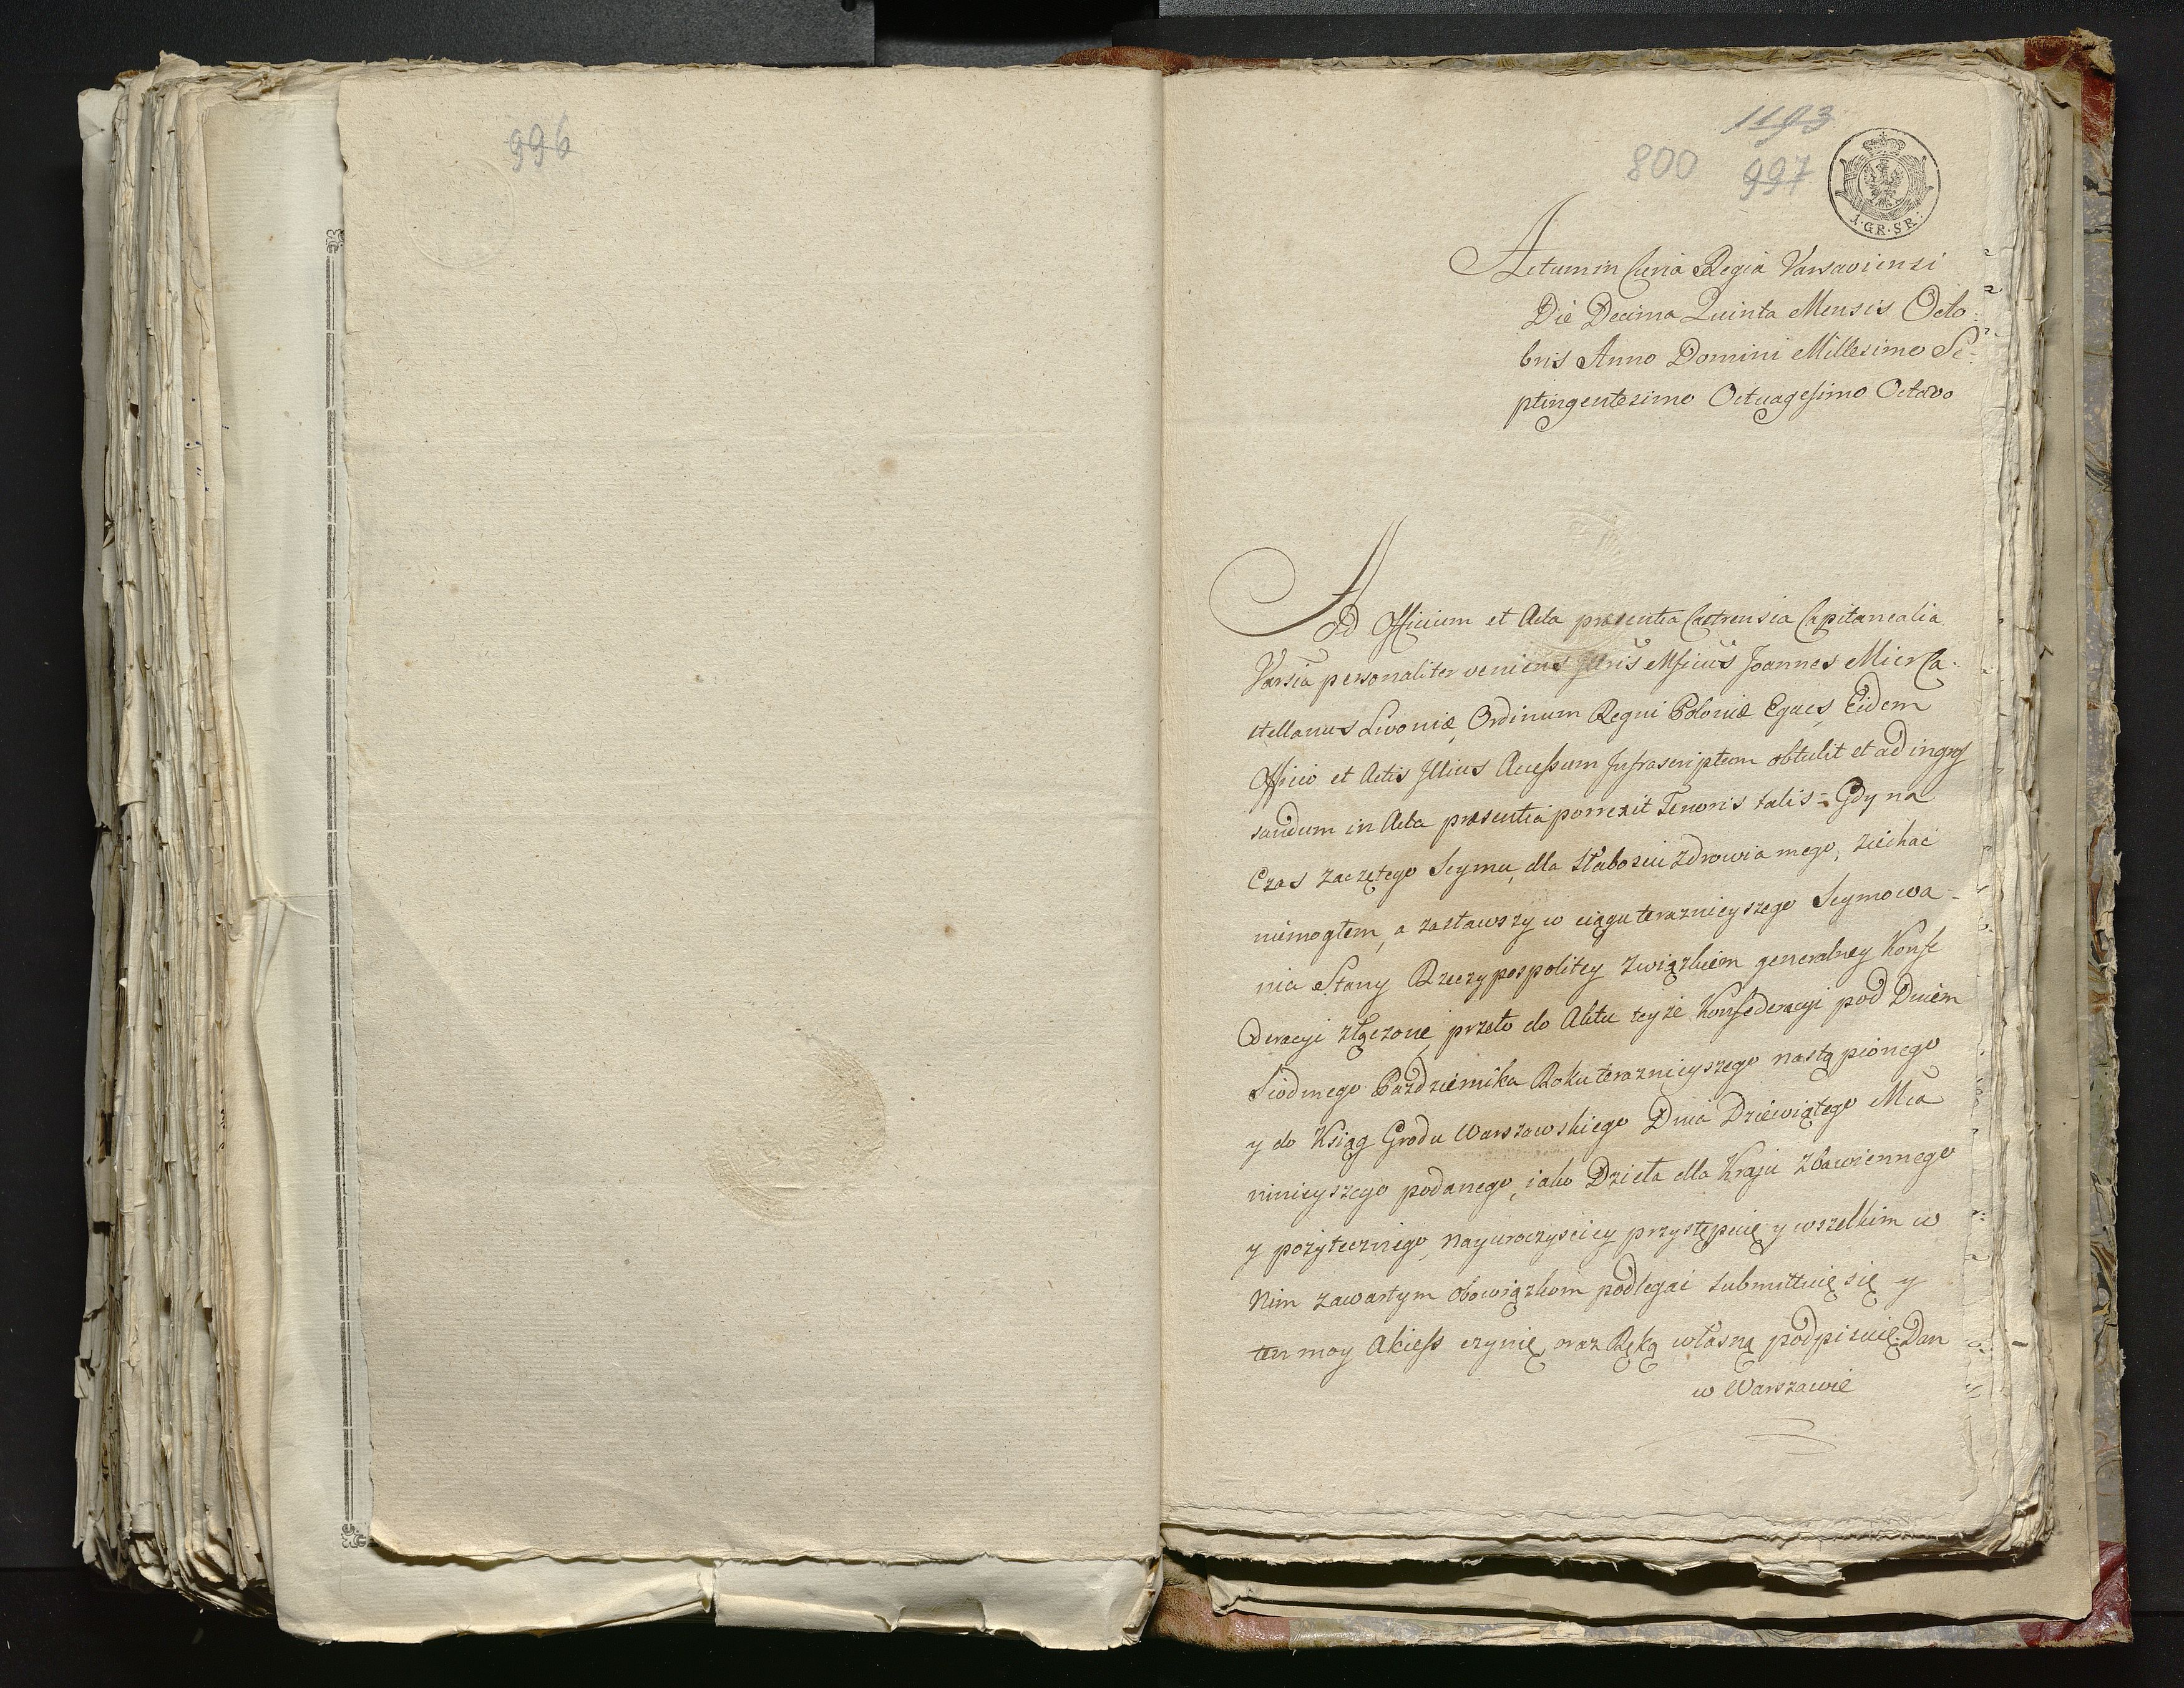 996
1193
800 997
1. GR. SR.
Actum in Curia Regia Varsaviensi
Die Decima Quinta Mensis Octo:
bris Anno Domini Millesimo Se-
ptingentesimo Octuagesimo Octavo
Ad Officium et Acta præsentia Castrensia Capitanealia
Varsia personaliter veniens Illris Mficus Joannes Mier Ca-
stellanus Livoniæ, Ordinum Regni Poloniæ Eques, Eidem
Officio et Actis Illius Accessum Infrascriptum obtulit et ad ingros
sandum in Acta præsentia porrexit Tenoris talis = Gdy na
Czas zaczętego Seymu, dla słabosci zdrowia mego, ziechać
niemogłem, a zastawszy w ciągu teraznieyszego Seymowa-
nia Stany Rzeczypospolitey związkiem generalney Konfe
deracyi złączone, przeto do Aktu teyże Konfederacyi pod Dniem
Siodmego Pazdziernika Roku teraznieyszego nastąpionego
y do Xsiąg Grodu Warszawskiego Dnia Dziewiątego Mca
ninieyszego podanego, iako Dzieła dla Kraju zbawiennego
y pożytecznego, nayuroczysciey przystępuię y wszelkim w
Nim zawartym obowiązkom podlegać submittuię się y
ten moy Akcess czynię, oraz Ręką własną podpisuię. Dan
w Warszawie